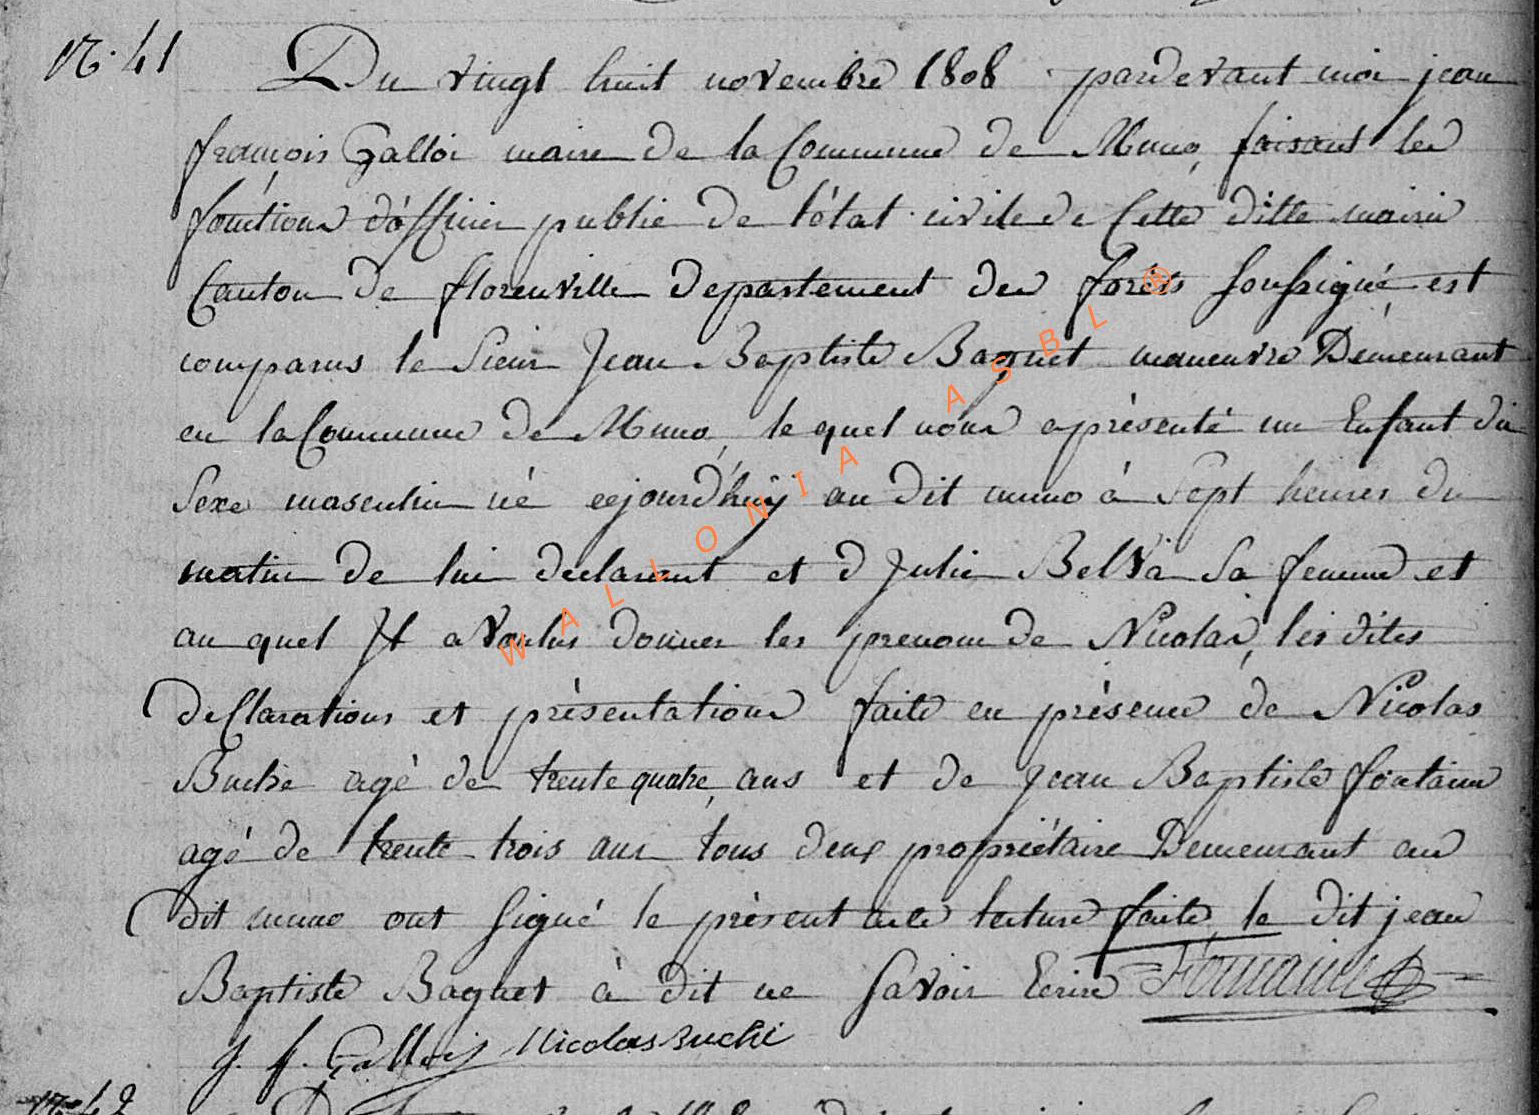 N.° 41
Du vingt huit novembre 1808 pardevant moi jean
françois Galloi maire de la Commune de Muno, faisant les
fonctions d'officier public de l'état civile de Cette ditte mairie
Canton de florenville departement des forêts soussigné est
comparus le Sieur Jean Baptiste Baquet maneuvre Demeurant
en la Commune de Muno, le quel nous apresenté un Enfant du
Sexe masculin né cejourd'huÿ au dit muno à Sept heures du
matin de lui declarant et d Julie Belva Sa femme et
au quel Il a Voulus donner les prenom de Nicolas, les dites
declarations et présentations faite en présence de Nicolas
Buche agé de trente quatre ans et de Jean Baptiste fontaine
agé de trente trois ans tous deux propriétaire Demeurant au
dit muno ont signé le présent acte lecture faite, le dit jean
Baptiste Baquet à dit ne savoir Ecrire Fontaine
J. f. Galloi Nicolas Buché
N.° 42
WALLONIA ASBL ®